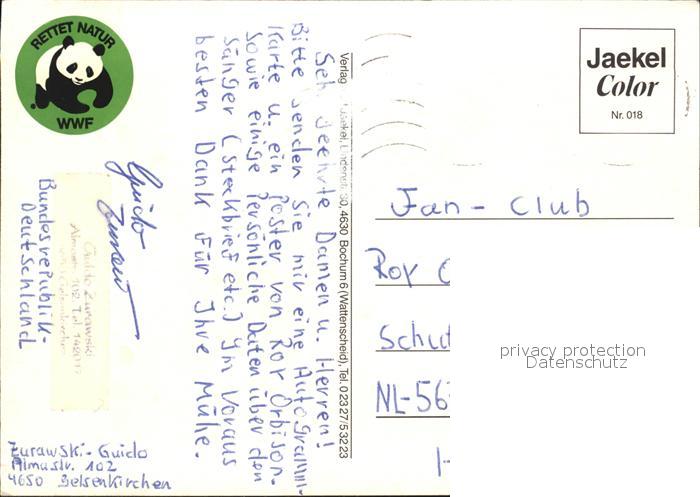 RETTET NATUR
WWF
Sehr geehrte Damen u. Herren!
Bitte senden Sie mir eine Autogramm-
Karte u. ein Poster von Roy Orbison.
Sowie einige Persönliche Daten über den
Sänger (Steckbrief etc.) Im Voraus
besten Dank für Ihre Mühe.
Guido
Bundesrepublik-
Deutschland
Guido Zurawski
Zurawski-Guido
Almastr. 102
4650 Gelsenkirchen
Verlag Jaekel, Lindenstr. 30, 4630 Bochum 6 (Wattenscheid), Tel. 0 23 27/5 32 23
Jaekel
Color
Nr. 018
Fan-Club
Roy
Schu
NL-56
privacy protection
Datenschutz